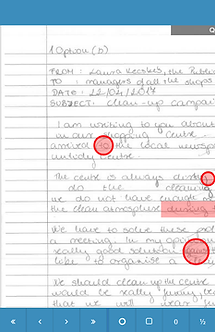 1 Option (b)
FROM: Laura Kecskés, the Public
TO: managers of all the shops
DATE: 22/04/2017
SUBJECT: clean-up campai
I am writing to you about
in our shopping centre.
arrived to the local newsp
untidy centre.
The centre is always dirty
do the cleaning
we do not have enough
the clean atmosphere during
We have to solve these pro
a meeting. In my opinion
really good solution
like to organise a
We should clean up the centre
would be really funny,
that we will wear fun
0 ½